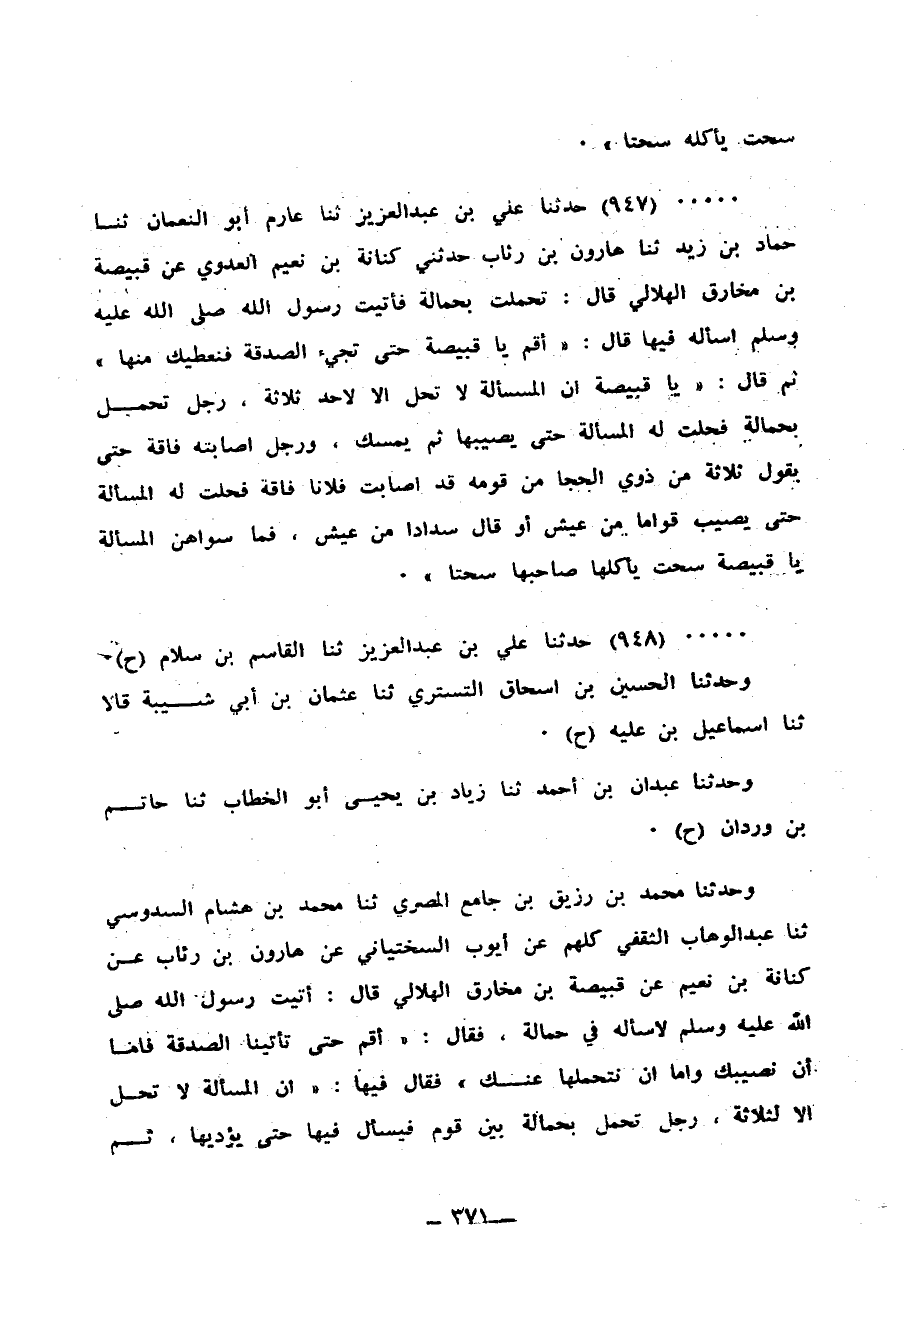 سحت يأكله سحتا » ٠
٠٠٠٠٠ (٩٤٧) حدثنا علي بن عبدالعزيز ثنا عارم أبو النعمان ثنا
حماد بن زيد ثنا هارون بن رئاب حدثني كنانة بن نعيم العدوي عن قبيصة
بن مخارق الهلالي قال : تحملت بحمالة فأتيت رسول الله صلى الله عليه
وسلم اسأله فيها قال : « أقم يا قبيصة حتى تجيء الصدقة فنعطيك منها »
ثم قال : « يا قبيصة ان المسألة لا تحل الا لاحد ثلاثة ، رجل تحمل
بحمالة فحلت له المسألة حتى يصيبها ثم يمسك ، ورجل اصابته فاقة حتى
يقول ثلاثة من ذوي الحجا من قومه قد اصابت فلانا فاقة فحلت له المسألة
حتى يصيب قواما من عيش أو قال سدادا من عيش ، فما سواهن المسألة
يا قبيصة سحت يأكلها صاحبها سحتا » ٠
٠٠٠٠٠ (٩٤٨) حدثنا علي بن عبدالعزيز ثنا القاسم بن سلام (ح)
وحدثنا الحسين بن اسحاق التستري ثنا عثمان بن أبي شيبة قالا
ثنا اسماعيل بن عليه (ح) ٠
وحدثنا عبدان بن أحمد ثنا زياد بن يحيى أبو الخطاب ثنا حاتم
بن وردان (ح) ٠
وحدثنا محمد بن رزيق بن جامع المصري ثنا محمد بن هشام السدوسي
ثنا عبدالوهاب الثقفي كلهم عن أيوب السختياني عن هارون بن رئاب عن
كنانة بن نعيم عن قبيصة بن مخارق الهلالي قال : أتيت رسول الله صلى
الله عليه وسلم لاسأله في حمالة ، فقال : « أقم حتى تأتينا الصدقة فاما
أن نصيبك واما ان نتحملها عنك » فقال فيها : « ان المسألة لا تحل
الا لثلاثة ، رجل تحمل بحمالة بين قوم فيسأل فيها حتى يؤديها ، ثم
— ٣٧١ —